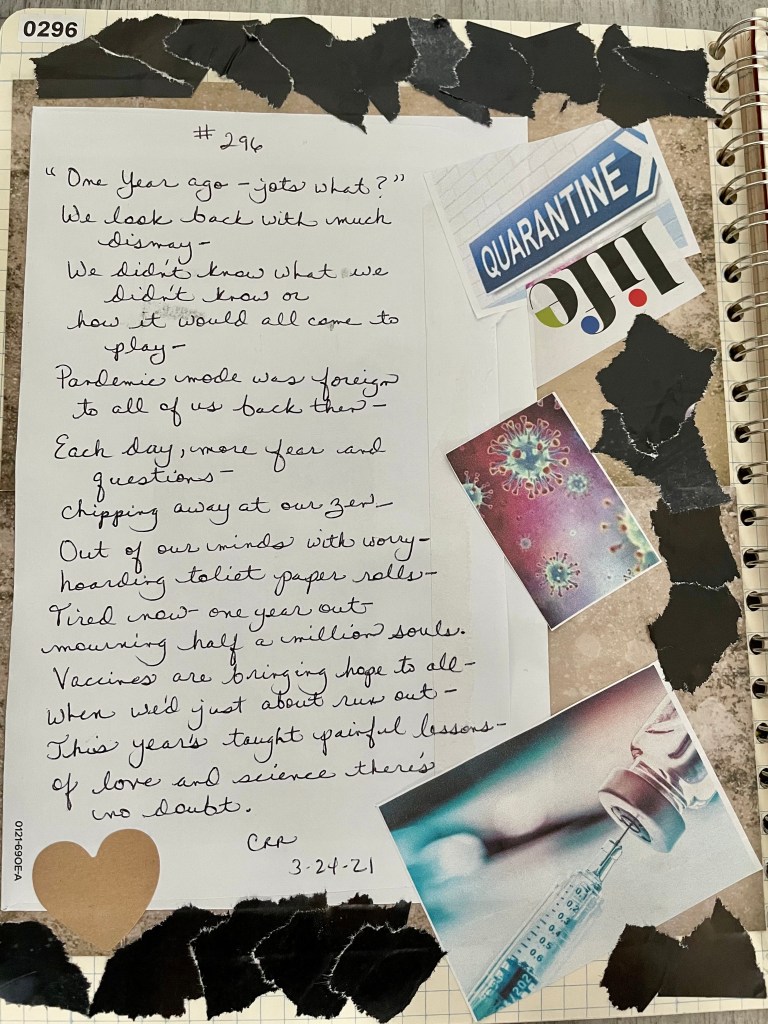 0296
# 296
"One Year ago - jots what?"
We look back with much
dismay-
We didn't know what we
didn't know or
how it would all come to
play-
Pandemic mode was foreign
to all of us back then-
Each day, more fear and
questions-
chipping away at our zen-
Out of our minds with worry-
hoarding toliet paper rolls-
Tired now- one year out-
mourning half a million souls.
Vaccines are bringing hope to all-
when we'd just about run out-
This year's taught painful lessons-
of love and science there's
no doubt.
CRR
3-24-21
QUARANTINE
life
0121-690E-A
0.1
0.2
0.3
0.4
0.5
0.6